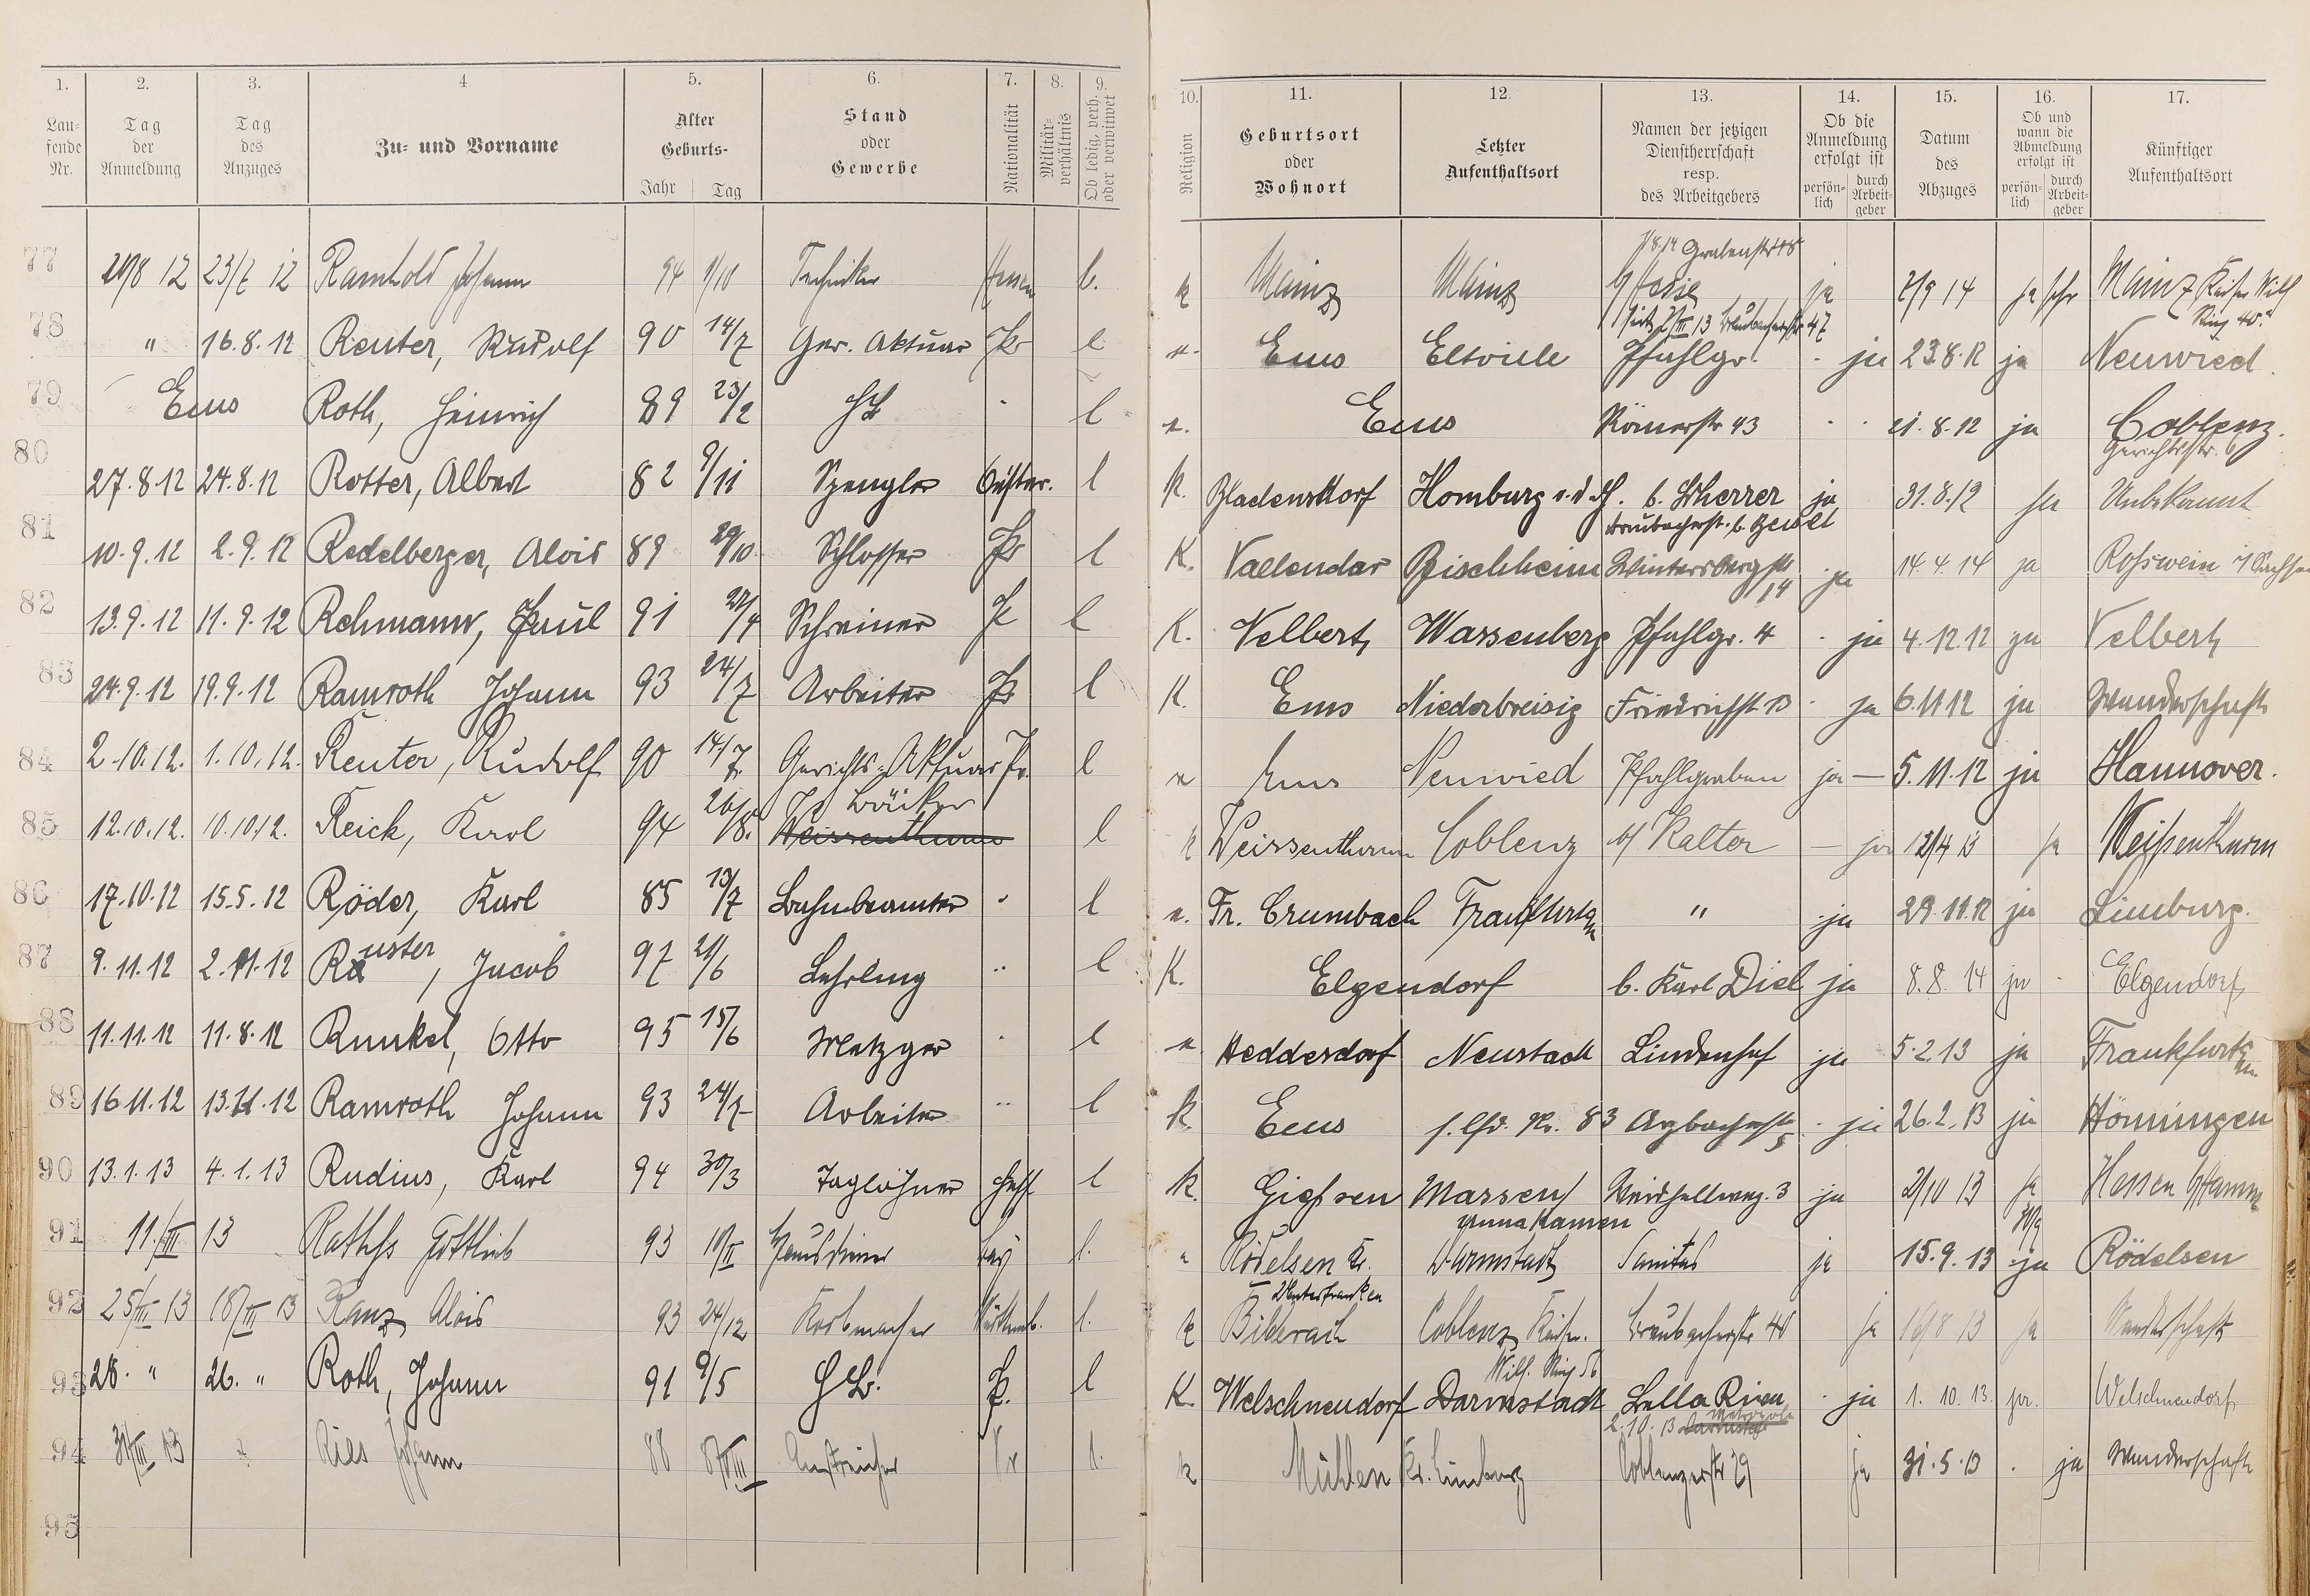 1. 2. 3. 4. 5. 6. 7. 8. 9. 10. 11. 12. 13. 14. 15. 16. 17.
Lau-fende Nr. Tag der Anmeldung Tag des Anzuges Zu- und Vorname Alter Geburts- Jahr Tag Stand oder Gewerbe Nationalität Militär-verhältnis Ob ledig, verh. oder verwitwet Religion Geburtsort oder Wohnort Letzter Aufenthaltsort Namen der jetzigen Dienstherrschaft resp. des Arbeitgebers Ob die Anmeldung erfolgt ist persön-lich durch Arbeit-geber Datum des Abzuges Ob und wann die Abmeldung erfolgt ist persön-lich durch Arbeit-geber Künftiger Aufenthaltsort
77 12 23/7 12 Johann 94 Techniker k Mainz Mainz Grabenstr 48 ja 2/9 14 Mainz Kaiser Wilh Ring 40
78 " 16.8.12 Reuter, Rudolf 90 14/7 Ger. Aktuar Pr l Ems Eltville Pfahlgr. ja 23.8.12 ja Neuwied
79 Ems Roth, Heinrich 89 23/2 l Ems Römerstr 43 21.8.12 ja Coblenz. Gerichtsstr. 6
80 27.8.12 24.8.12 Rotter, Albert 82 9/11 Spengler Öster. l K. Homburg v.d.H. b. Scherrer ja 31.8.12 ja Unbekannt
81 10.9.12 2.9.12 Redelberger, Alois 89 29/10 Schlosser Pr l K. Vallendar Bischheim Wintersbergstr 14 ja 14.4.14 ja Rosswein i/Sachsen
82 13.9.12 11.9.12 Rehmann, Paul 91 Schreiner l K. Velbert Wassenberg Pfahlgr. 4 ja 4.12.12 ja Velbert
83 24.9.12 19.9.12 Ramroth Johann 93 24/7 Arbeiter Pr l K. Ems Niederbreisig Friedrichstr 13 ja 6.11.12 ja Wanderschaft
84 2.10.12. 1.10.12. Reuter, Rudolf 90 14/7. Gerichts-Aktuar Pr. l Ems Neuwied Pfahlgraben ja — 5.11.12 ja Hannover.
85 12.10.12. 10.10.12. Reick, Karl 94 26/8. Bäcker Weissenthurm l k Weissenthurm Coblenz b/ Kalter — ja 12/4 13 ja Weißenthurm
86 17.10.12 15.5.12 Röder, Karl 85 13/7 Bahnbeamter l Fr. Crumbach Frankfurt a/m " ja 29.11.12 ja Limburg.
87 9.11.12 2.11.12 Ruster, Jacob 97 21/6 Lehrling " l K. Elgendorf b. Karl Diel ja 8.8.14 ja Elgendorf
88 11.11.12 11.8.12 Runkel, Otto 95 15/6 Metzger l Heddesdorf Neustadt Lindenhof ja 5.2.13 ja Frankfurt a/m
89 16.11.12 13.11.12 Ramroth Johann 93 24/7 Arbeiter " l K. Ems s. lfd. Nr. 83 Arzbacherstr 5 ja 26.2.13 ja Hönningen
90 13.1.13 4.1.13 Rudius, Karl 94 30/3 Taglöhner Hess l K. Giessen Massen Unna Kamen ja 2/10 13 ja Hessen b/Hamm
91 11./III 13 Gottlieb 93 Hausdiener l. Rödelsen Unterfranken Darmstadt Sanitas ja 15.9.13 ja Rödelsen
92 25/III 13 18/III 13 Ranz Alois 93 24/12 Korbmacher Württemb. l. k Biberach Coblenz Kaiser Wilh. Ring 56 Braubacherstr 40 ja 16/8 13 ja Wanderschaft
93 28. " 26. " Roth, Johann 91 9/5 P. l K. Welschneudorf Darmstadt Bella Riva ja 1.10.13. ja. Welschneudorf
2.10.13
94 31/III 13 Ries Johann 88 Anstreicher Pr l. k Mühlen Kr. Limburg Coblenzerstr 29 ja 31.5.13 ja Wanderschaft
95